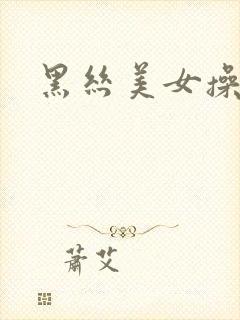 黑丝美女操
萧艾